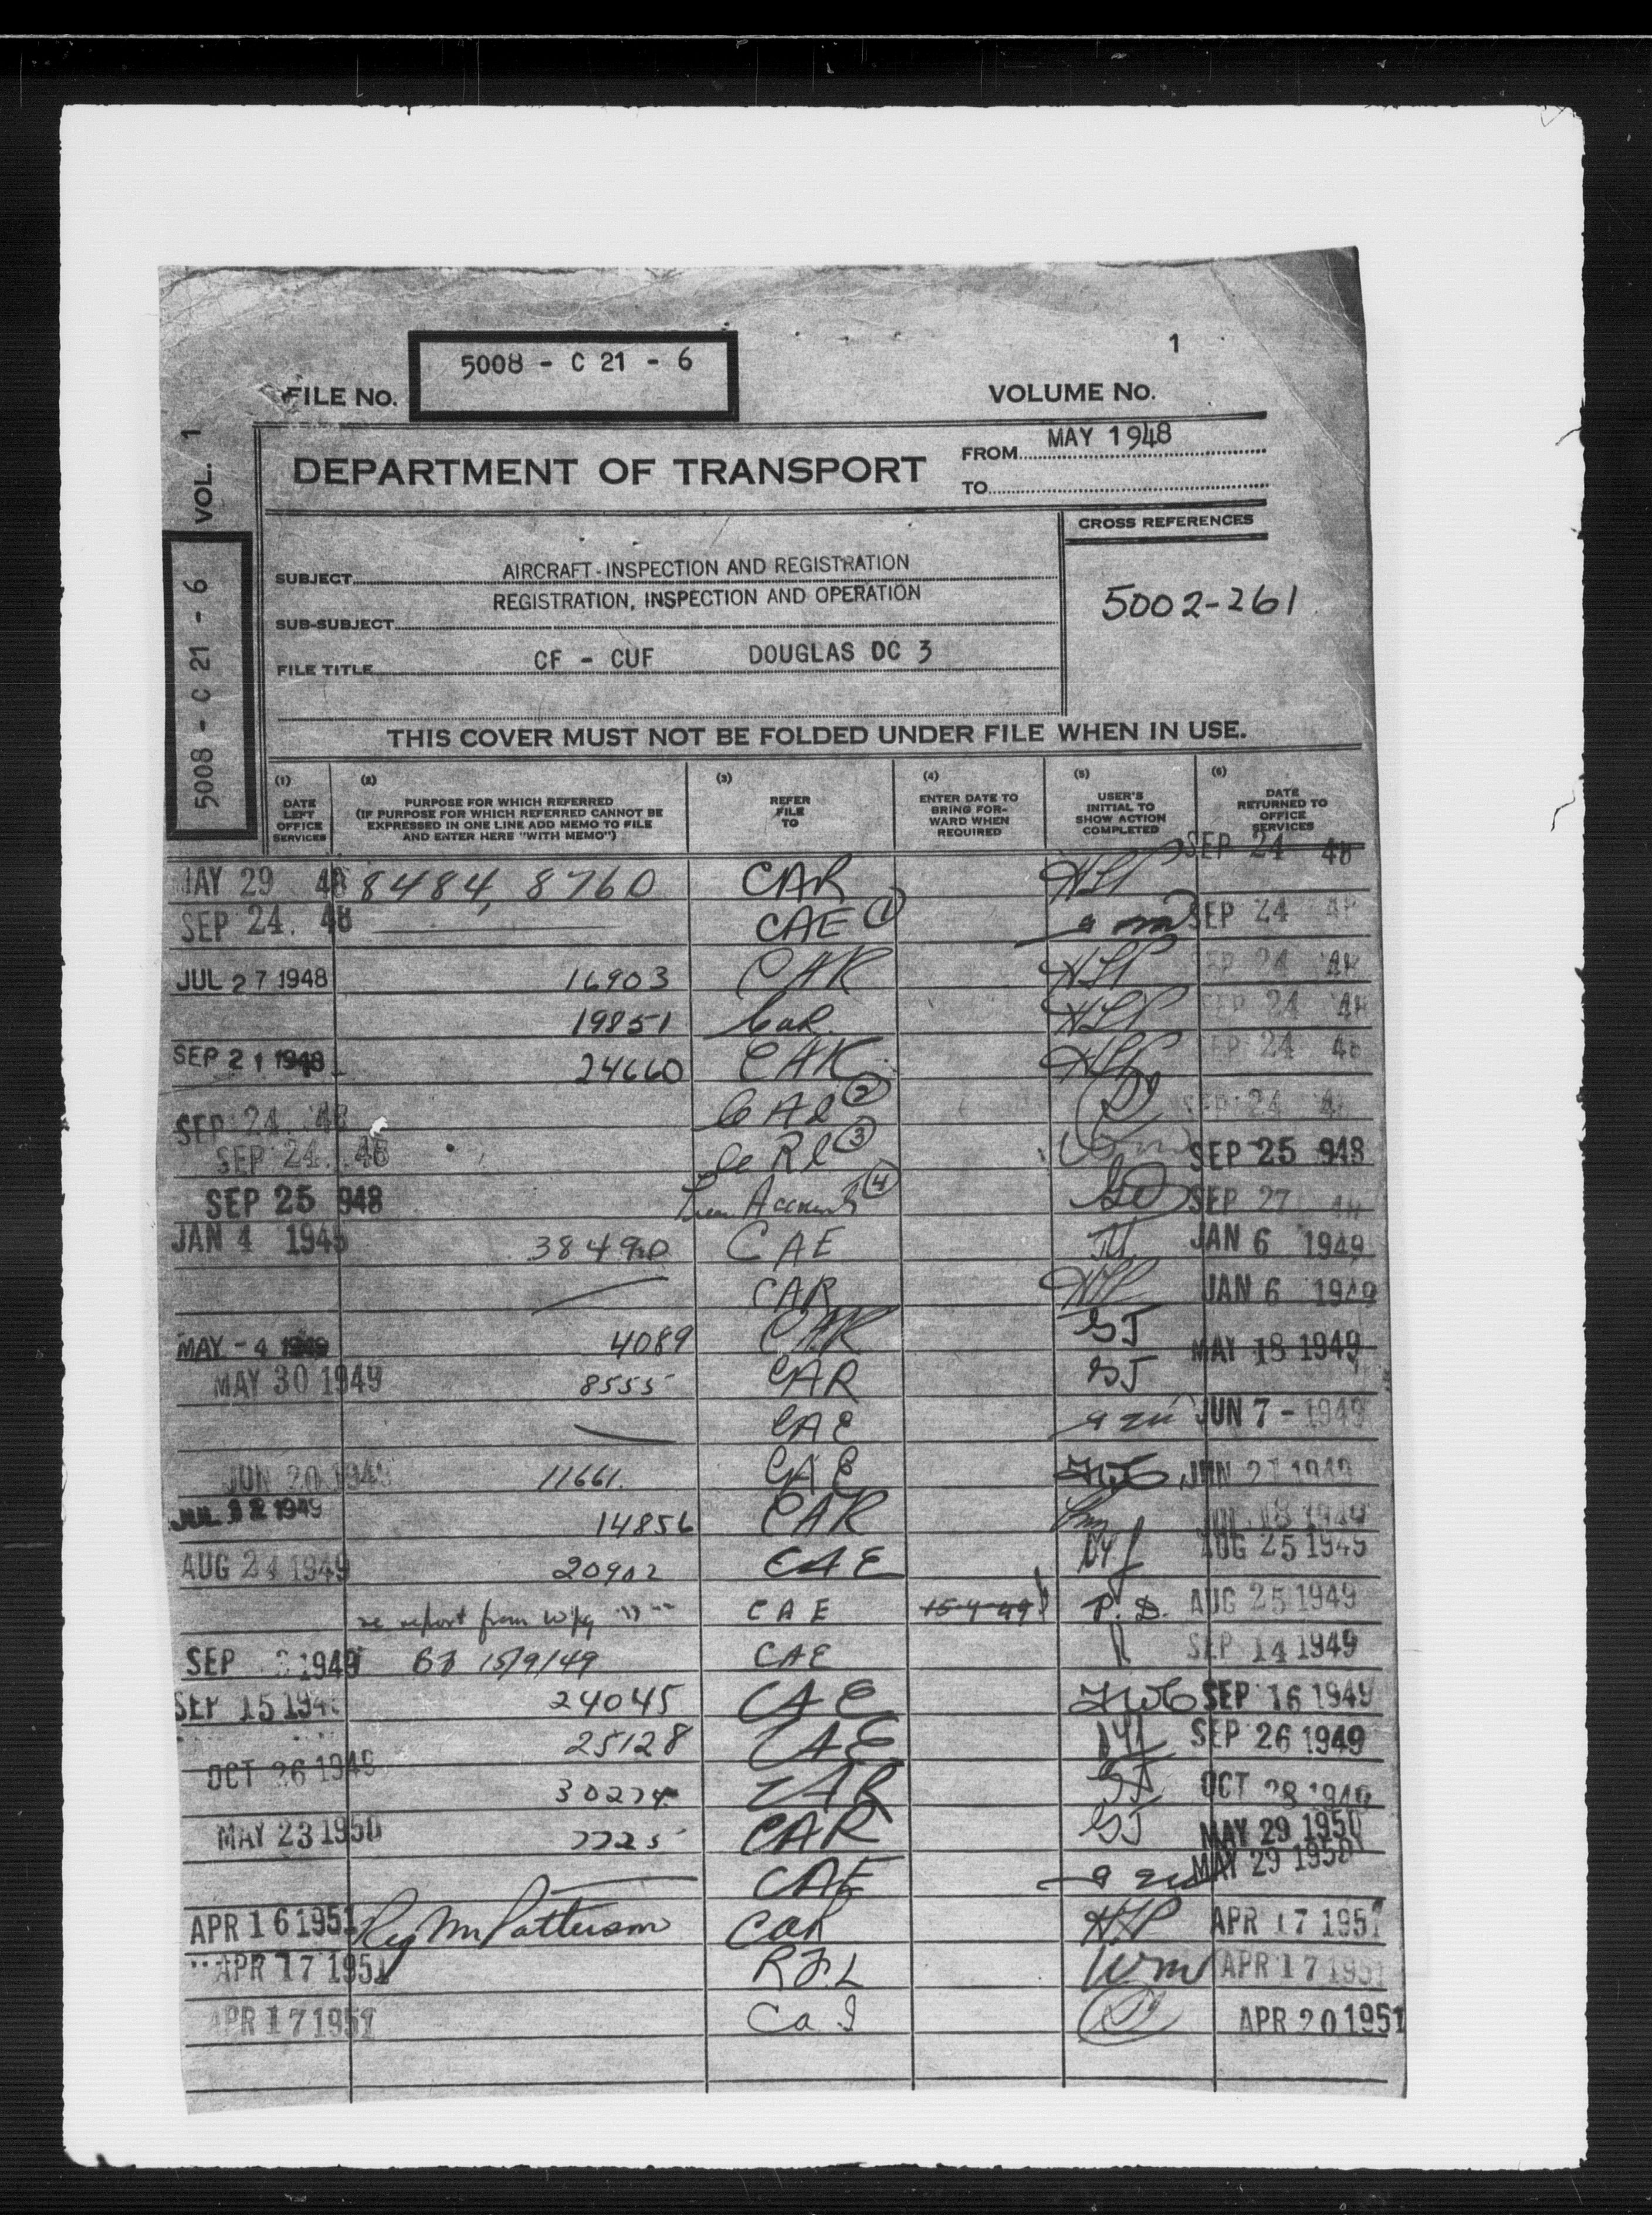 1
FILE No. 5008 - C 21 - 6 VOLUME No.
VOL. 1
5008 - C 21 - 6
DEPARTMENT OF TRANSPORT
FROM MAY 1948
TO
CROSS REFERENCES
5002-261
SUBJECT AIRCRAFT - INSPECTION AND REGISTRATION
REGISTRATION, INSPECTION AND OPERATION
SUB-SUBJECT
FILE TITLE CF - CUF DOUGLAS DC 3
THIS COVER MUST NOT BE FOLDED UNDER FILE WHEN IN USE.
(1) DATE LEFT OFFICE SERVICES
(2) PURPOSE FOR WHICH REFERRED (IF PURPOSE FOR WHICH REFERRED CANNOT BE EXPRESSED IN ONE LINE ADD MEMO TO FILE AND ENTER HERE "WITH MEMO")
(3) REFER FILE TO
(4) ENTER DATE TO BRING FOR-WARD WHEN REQUIRED
(5) USER'S INITIAL TO SHOW ACTION COMPLETED
(6) DATE RETURNED TO OFFICE SERVICES
MAY 29 48 8484, 8760 CAR SEP 24 48
SEP 24. 48 CAE 1 SEP 24 48
JUL 27 1948 16903 CAR SEP 24 48
19851 CAR. SEP 24 48
SEP 21 1948 24660 CAR SEP 24 48
SEP 24. 48 2 SEP 24 48
SEP 24. 48 3 SEP 25 948
SEP 25 948 4 SEP 27 48
JAN 4 194 CAE JAN 6 1949
CAR JAN 6 1949
MAY - 4 1949 4089 CAR GJ MAY 18 1949
MAY 30 1949 8555 CAR GJ
CAE JUN 7 - 1949
JUN 20 1949 11661. CAE JUN 21 1949
JUL 1949 14856 CAR JUL 18 1949
AUG 24 1949 20902 CAE AUG 25 1949
re report from Wpg CAE P. D. AUG 25 1949
SEP 1949 15/9/49 CAE SEP 14 1949
SEP 15 194 24045 CAE SEP 16 1949
25128 CAE SEP 26 1949
OCT 26 1949 CAR OCT 28 1949
MAY 23 1950 7725 CAR GJ MAY 29 1950
CAE MAY 29 1950
APR 16 1951 Patterson CAR APR 17 1951
APR 17 1951 APR 17 1951
APR 17 1951 APR 20 1951